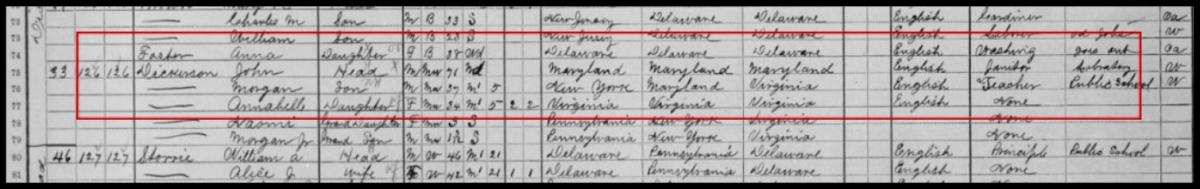 Charles M Son M B 33 S New Jersey Delaware Delaware English Gardiner
73 William Son M B 28 S New Jersey Delaware Delaware English Laborer odd jobs W
74 Foster Anna Daughter F B 38 Wd Delaware Delaware Delaware English Washing goes out
75 33 126 126 Dickerson John Head M Mu 71 Maryland Maryland Maryland English Janitor W
76 Morgan Son M Mu 27 M1 5 New York Maryland Virginia English Teacher Public School W
77 Annabelle Daughter F Mu 24 M1 5 2 2 Virginia Virginia Virginia English None
78 Naomi Grand Daughter F Mu 3 S Pennsylvania New York Virginia None
Morgan Jr Grand Son M Mu S Pennsylvania New York Virginia None
80 46 127 127 Storrie William a Head M W 46 M1 21 Delaware Pennsylvania Delaware English Principle Public School W
81 Alice J wife F W 42 M1 21 1 1 Delaware Pennsylvania Delaware English None